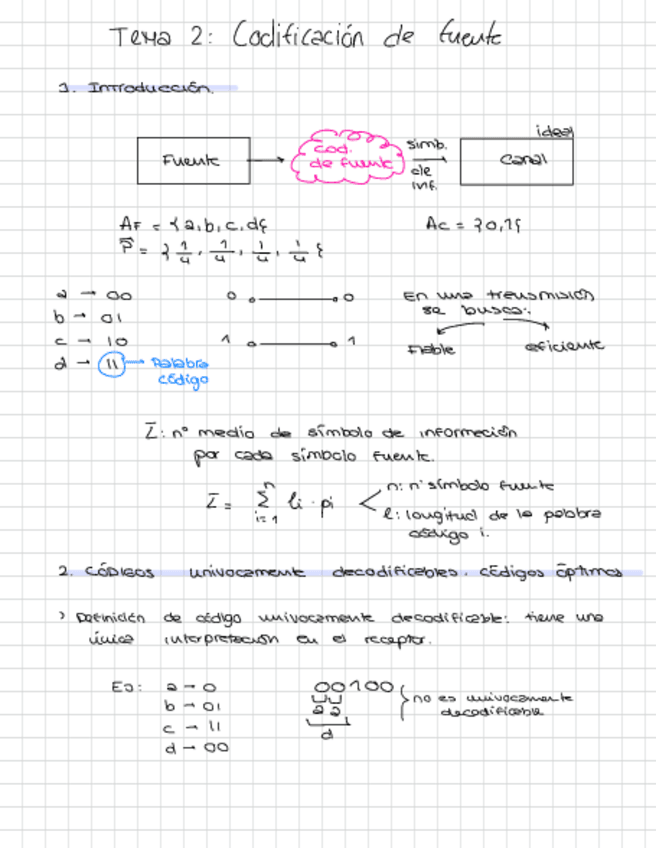 Tema 2: Codificación de fuente
1. Introducción.
Fuente
cod.
de fuente
simb.
de
inf.
ideal
canal
AF = {a,b,c,d}
Ac = {0,1}
P⃗ = {1/4, 1/4, 1/4, 1/4}
a → 00
b → 01
c → 10
d → 11 → Palabra
código
0 0
1 1
En una transmisión
se busca:
Fiable eficiente
L̄: nº medio de símbolo de información
por cada símbolo fuente.
L̄ = Σ i=1 n li · pi
n: nº símbolo fuente
l: longitud de la palabra
código i.
2. CÓDIGOS univocamente decodificables. Códigos óptimos
> Definición de código univocamente decodificable: tiene una
única interpretación en el receptor.
Ej: a → 0
b → 01
c → 11
d → 00
00100
a a
d
no es univocamente
decodificable